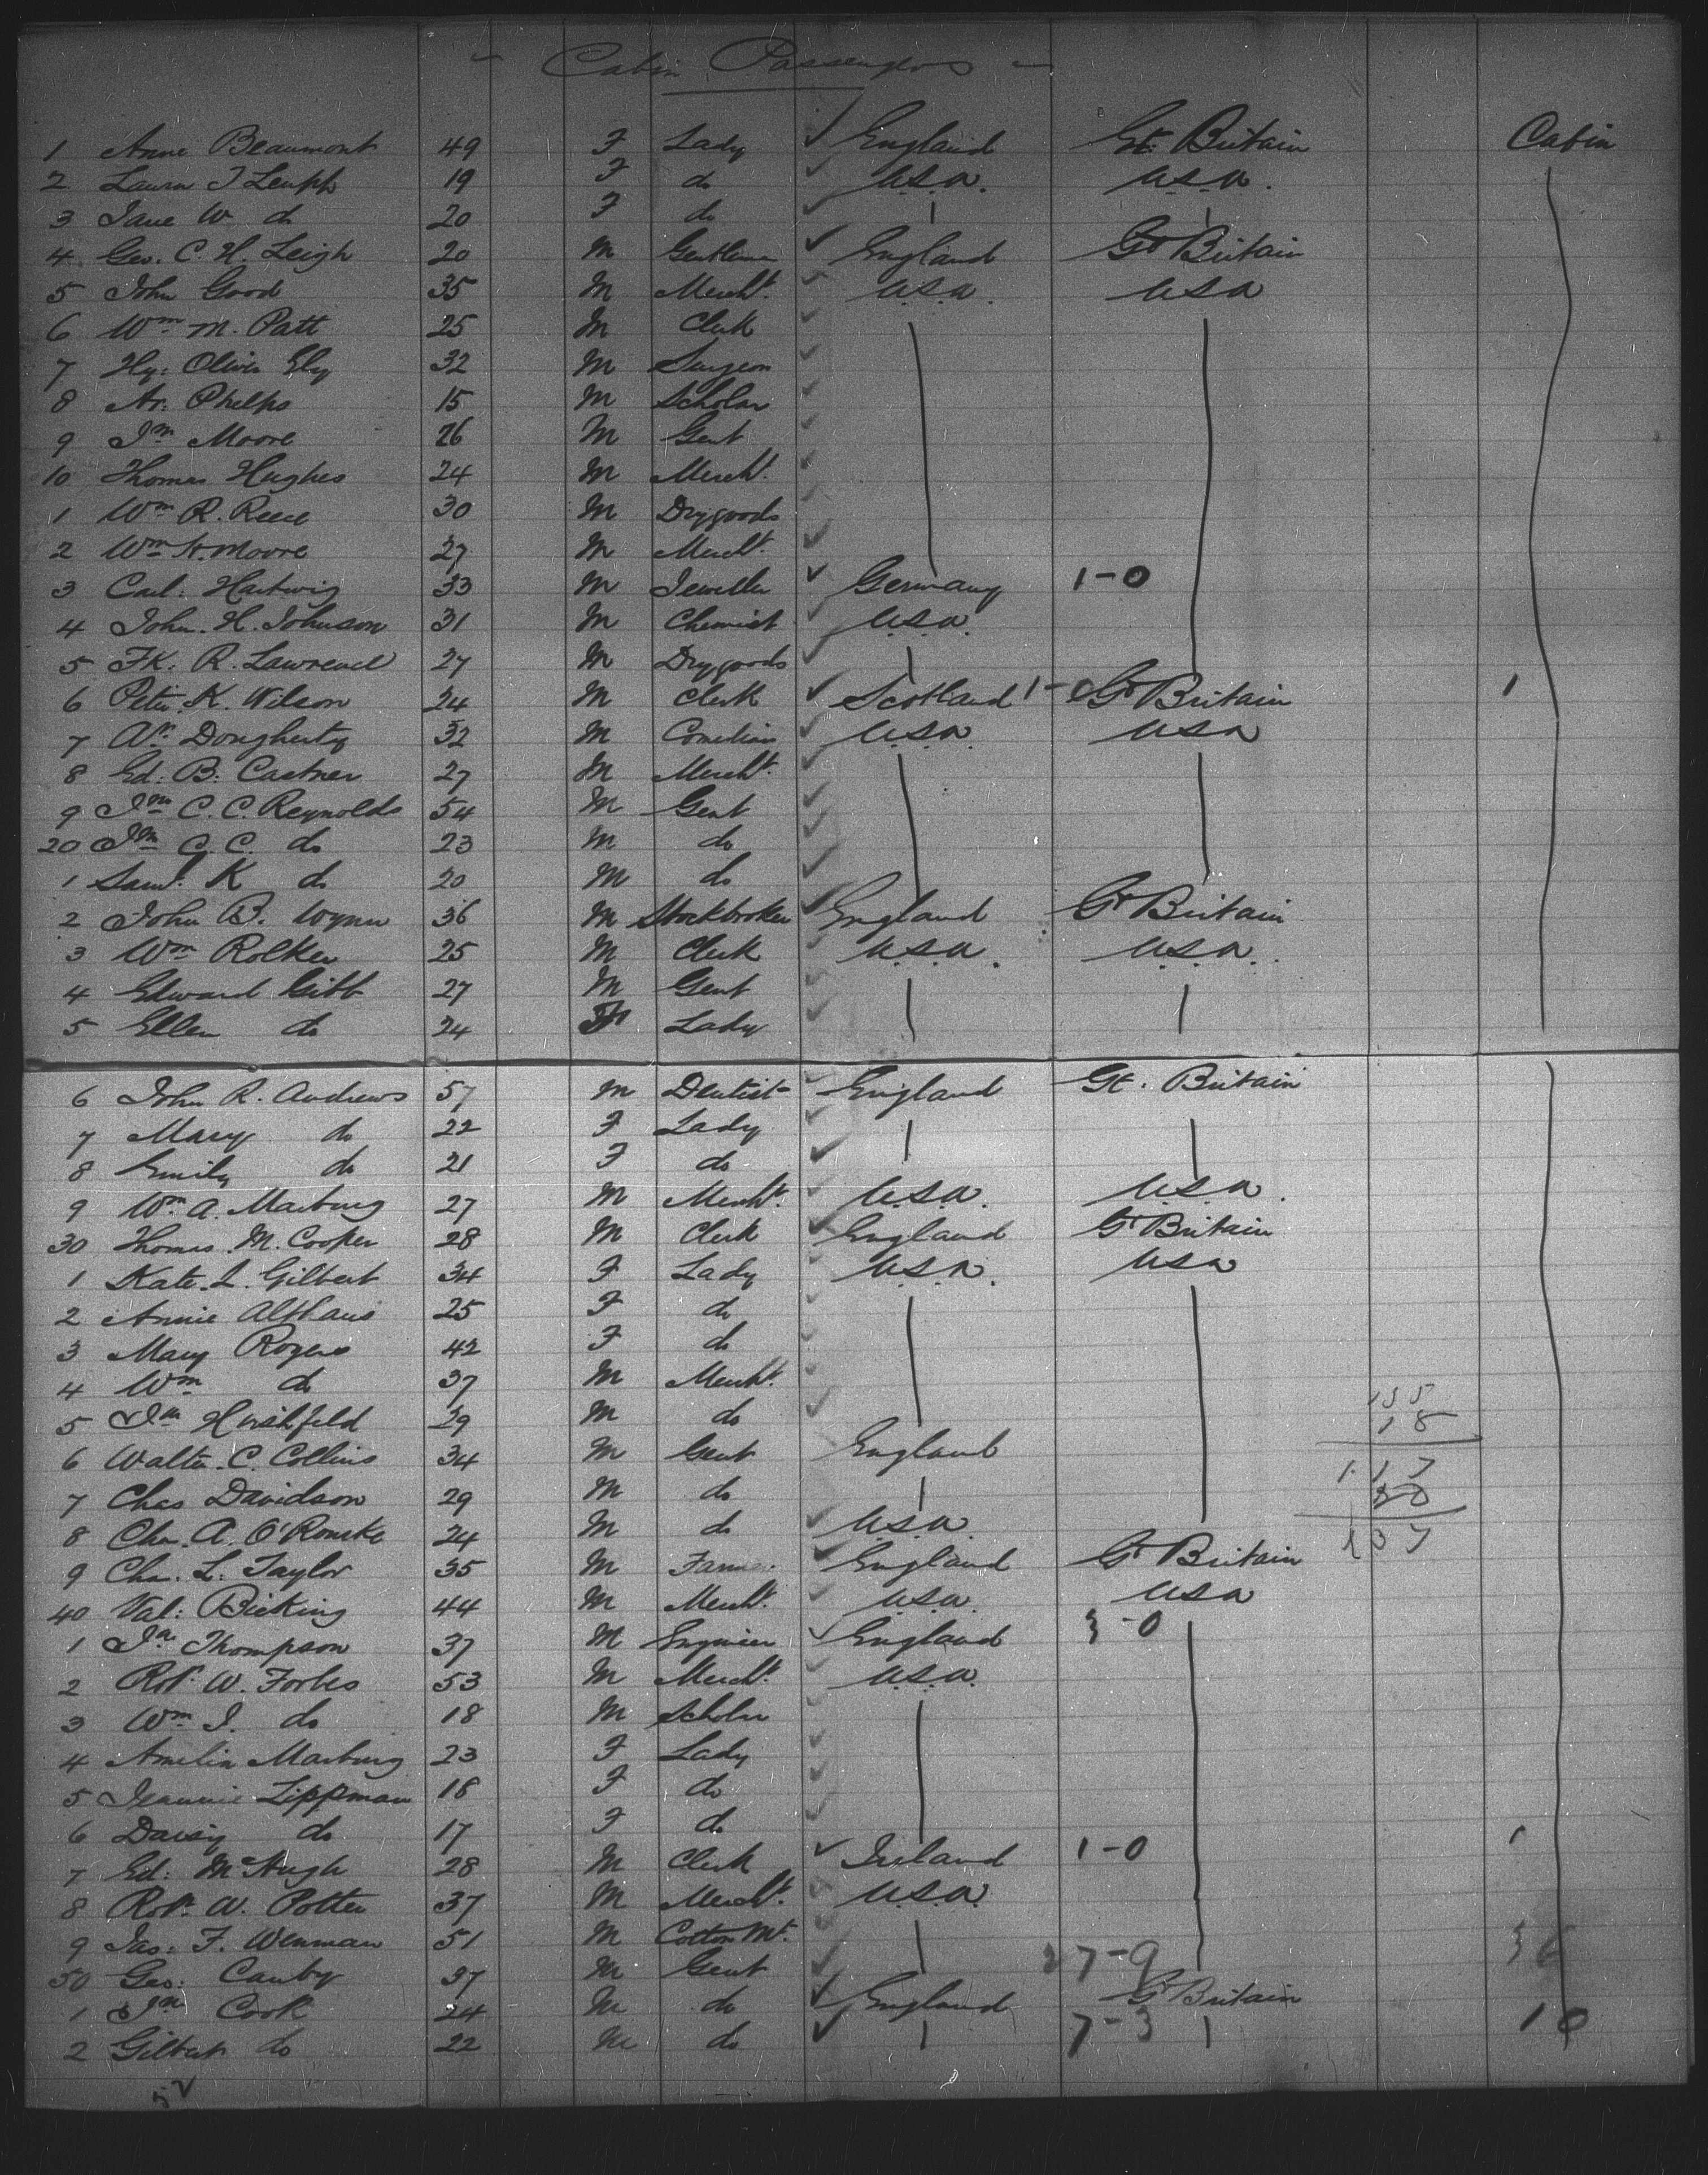 Cabin Passengers
1 Anne Beaumont 49 F Lady England Gt. Britain Cabin
2 Laura J Leupp 19 F do U.S.A. U.S.A.
3 Jane W. do 20 F do
4 Geo. C. H. Leigh 20 M Gentleman England Gt Britain
5 John Good 35 M Mercht. U.S.A. USA
6 Wm M. Patt 25 M Clerk
7 Hy: Oliver Ely 32 M Surgeon
8 Ar: Phelps 15 M Scholar
9 Jn Moore 26 M Gent
10 Thomas Hughes 24 M Mercht.
1 Wm R. Reece 30 M Drygoods
2 Wm H. Moore 27 M Mercht.
3 Carl: Hartwig 33 M Jeweller Germany 1-0
4 John. H. Johnson 31 M Chemist U.S.A.
5 Fk: R. Lawrence 27 M Drygoods
6 Peter K. Wilson 24 M Clerk Scotland 1-0 Gt Britain 1
7 An Dougherty 32 M Comedian U.S.A. USA
8 Ed: B: Castner 27 M Mercht.
9 Jn C. C. Reynolds 54 M Gent
20 Jn C. C. do 23 M do
1 Saml. K do 20 M do
2 John B. Wynn 36 M Stockbroker England Gt Britain
3 Wm Rolker 25 M Clerk U.S.A. U.S.A.
4 Edward Gibb 27 M Gent
5 Ellen do 24 F Lady
6 John R. Andrews 57 M Dentist England Gt. Britain
7 Mary do 22 F Lady
8 Emily do 21 F do
9 Wm A. Marburg 27 M Mercht. U.S.A. U.S.A.
30 Thomas M. Cooper 28 M Clerk England Gt Britain
1 Kate L. Gilbert 34 F Lady U.S.A. USA
2 Annie Althaus 25 F do
3 Mary Rogers 42 F do
4 Wm do 37 M Mercht.
5 Jn Hirshfeld 29 M do
6 Walter C. Collins 34 M Gent England
7 Chas Davidson 29 M do
8 Cha. A. O'Rourke 24 M do U.S.A.
9 Cha. L. Taylor 35 M Farmer England Gt Britain
40 Val: Bicking 44 M Mercht. U.S.A. USA
1 Ja Thompson 37 M Engineer England 3-0
2 Robt. W. Forbes 53 M Mercht. U.S.A.
3 Wm J. do 18 M Scholar
4 Amelia Marburg 23 F Lady
5 Jeannie Lippman 18 F do
6 Daisy do 17 F do
7 Ed: McHugh 28 M Clerk Ireland 1-0 1
8 Robt. W. Potter 37 M Mercht. U.S.A.
9 Jas: F. Wenman 51 M Cotton Mt.
50 Geo: Canby 37 M Gent 27-9 36
1 Jn Cook 24 M do England Gt Britain
2 Gilbert do 22 M do 7-3 10
52